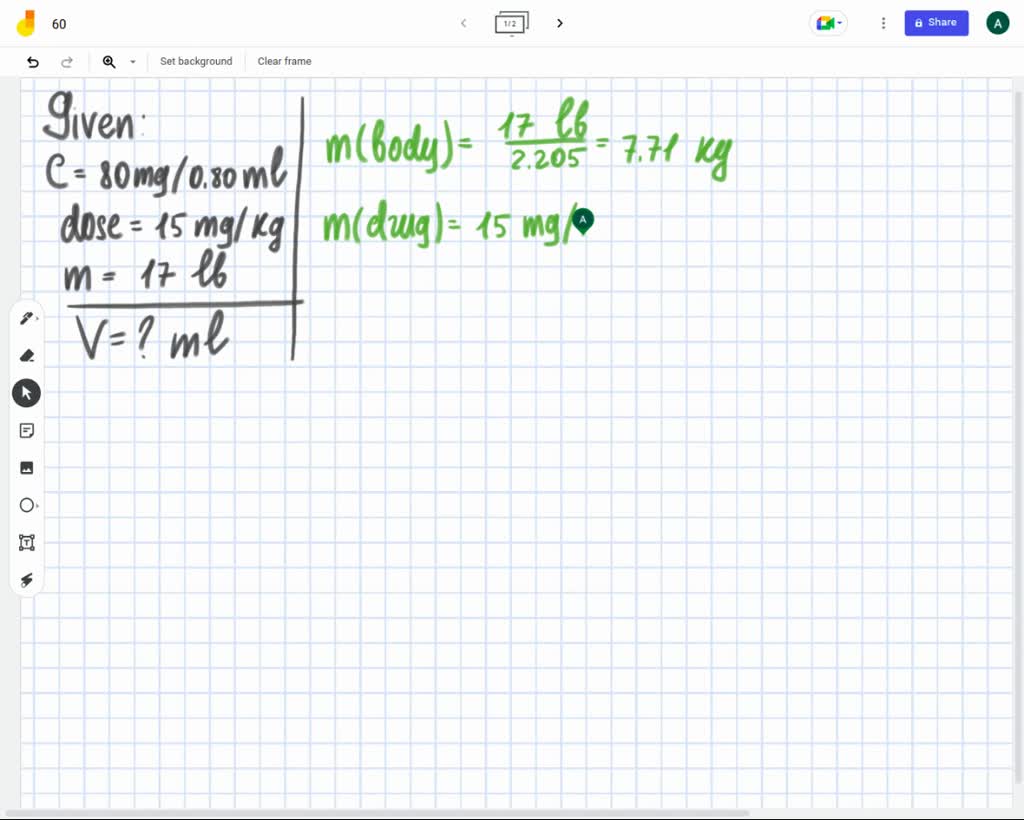 60
1/2
Share
A
Set background
Clear frame
Given:
C = 80 mg/0.80 ml
dose = 15 mg/kg
m = 17 lb
V = ? ml
m(body) = 17 lb / 2.205 = 7.71 kg
m(drug) = 15 mg/
A
T